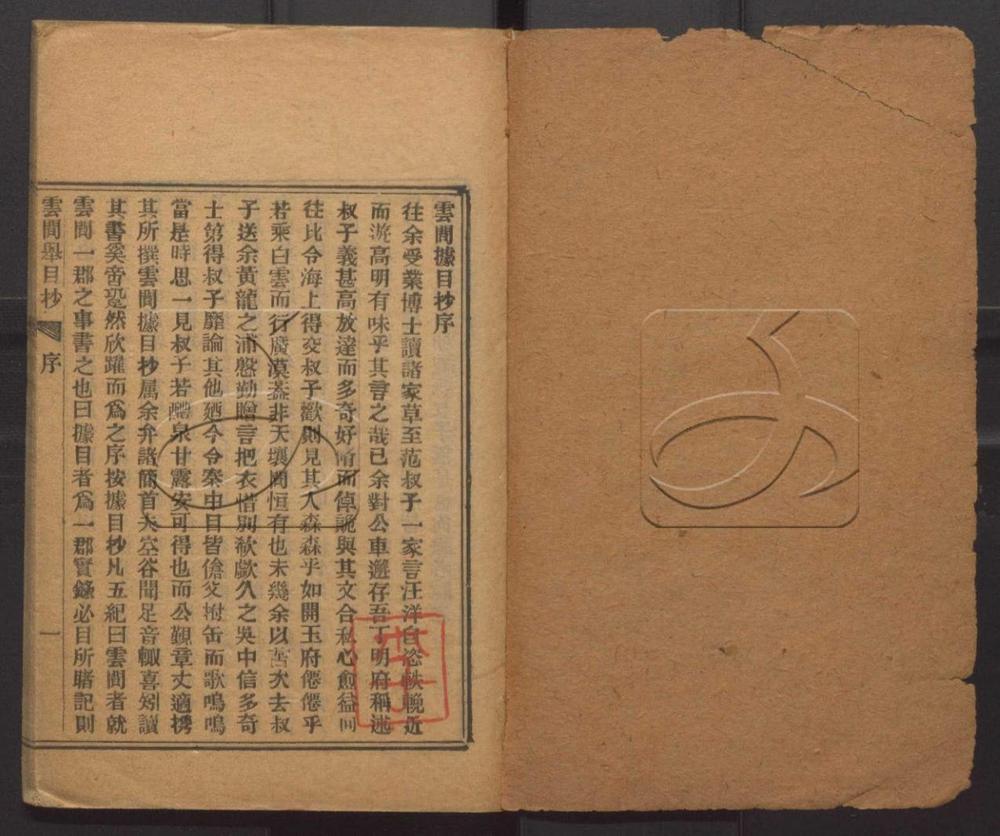 雲間據目抄序
往余受業博士讀諸家草至范叔子一家言汪洋自恣軼輓近
而游高明有味乎其言之哉已余對公車邂存吾丁明府稱述
叔子義甚高放達而多奇好脩而倬詭與其文合私心愈益向
往比令海上得交叔子歡則見其人森森乎如開玉府倦倦乎
若乘白雲而行廣漠蓋非天壤間恒有也未幾余以言次去叔
子送余黃龍之浦慇懃贈言把衣惜別欷歔久之吳中信多奇
士第得叔子靡論其他廼今令秦中目皆傖父拊缶而歌嗚嗚
當是時思一見叔子若醴泉甘露安可得也而公覲章丈適攜
其所撰雲間據目抄属余弁諸簡首夫空谷聞足音輒喜矧讀
其書奚啻跫然欣躍而爲之序按據目抄凡五紀曰雲間者就
雲間一郡之事書之也曰據目者爲一郡實錄必目所睹記則
雲間舉目抄 序 一